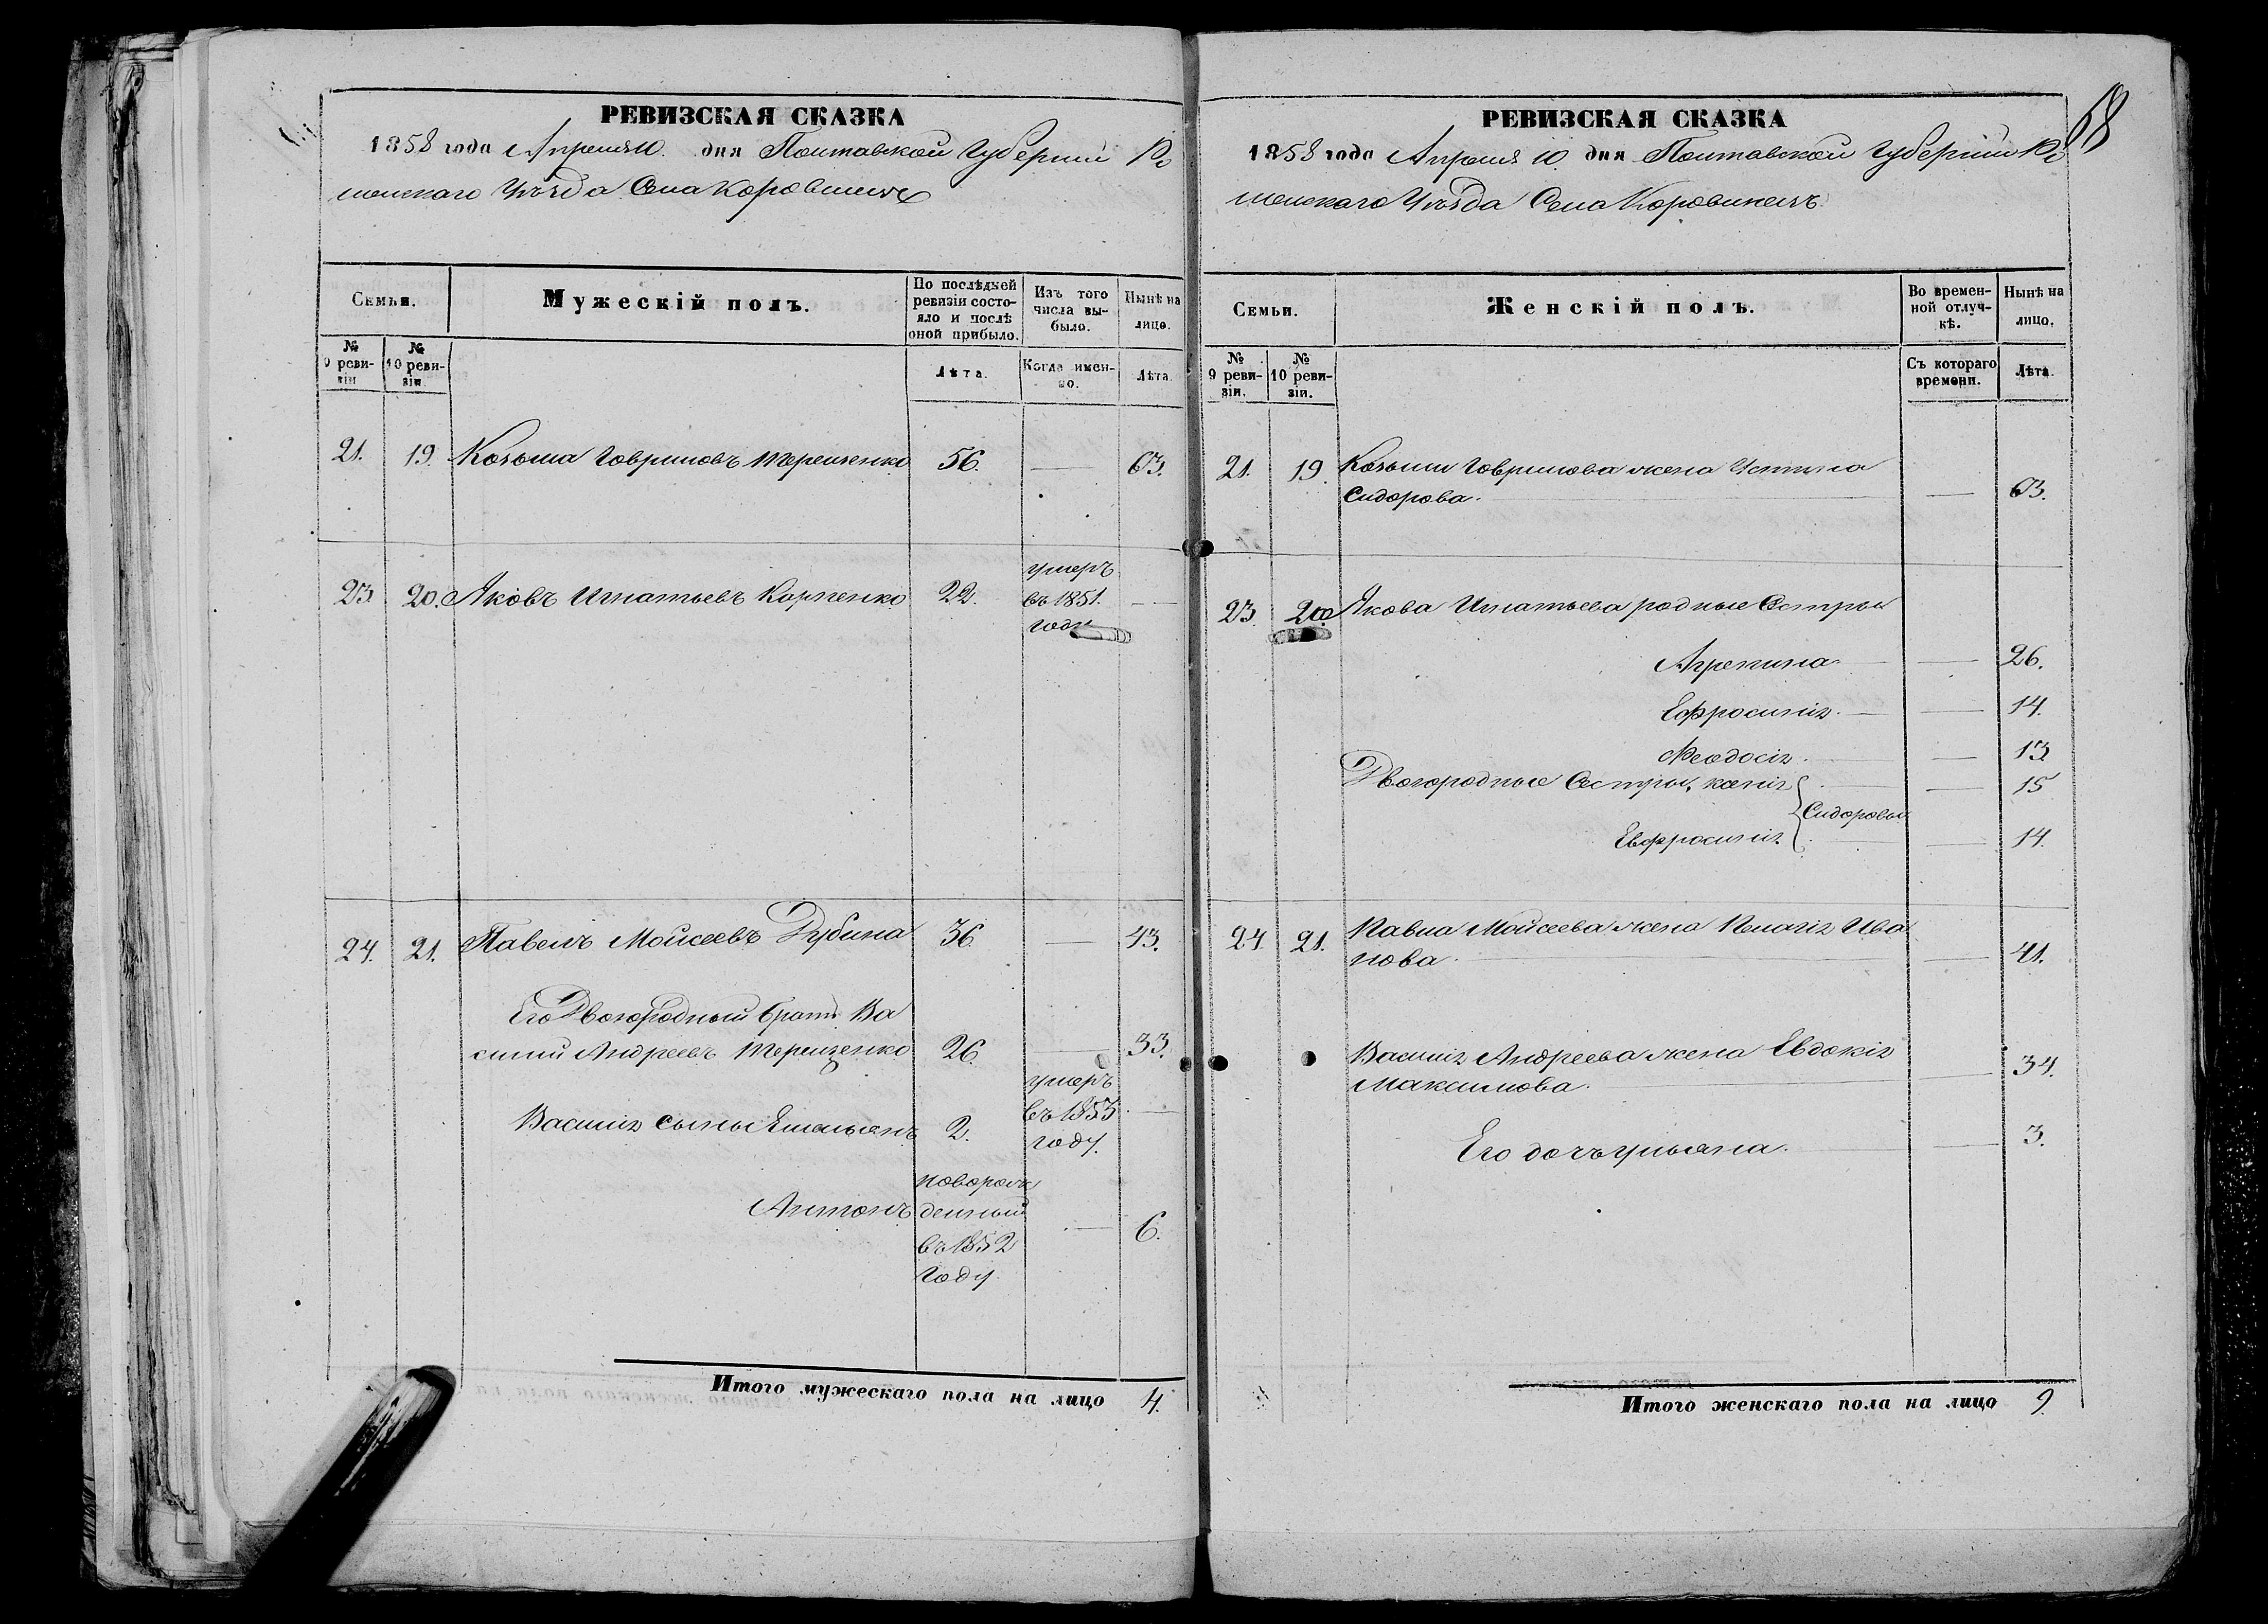 РЕВИЗСКАЯ СКАЗКА
1858 года Апреля 10. дня Полтавской Губерніи Ро
менскаго Уѣзда Села Коровинецъ
Семьи.
Мужескій полъ.
По послѣдней ревизіи состояло и послѣ оной прибыло.
Изъ того числа выбыло.
Нынѣ на лицо.
№ 9 ревизіи
№ 10 ревизіи
Лѣта.
Когда именно.
Лѣта.
21. 19. Козьма Говриловъ Терещенко 56. — 63.
23. 20. Яковъ Игнатьевъ Карпенко 22. умеръ
въ 1851. —
году
24. 21. Павелъ Мойсеевъ Дубина 36 — 43.
Его Двоюродный братъ Ва
силий Андреевъ Терещенко 26. — 33.
Василія сыны Емельянъ 2. умеръ
въ 1853 —
году.
Антонъ новорож
денный — 6.
въ 1852
году.
Итого мужескаго пола на лицо 4.
68
РЕВИЗСКАЯ СКАЗКА
1858 года Апреля 10 дня Полтавской Губерніи Ро
менскаго Уѣзда Села Коровинецъ
Семьи.
Женскій полъ.
Во временной отлучкѣ.
Нынѣ на лицо.
№ 9 ревизіи.
№ 10 ревизіи.
Съ котораго времени.
Лѣта.
21. 19. Козьмы Говрилова жена Устина
Сидорова. — 63.
23. 20. Якова Игнатьева родные Сестры
Агрепина — 26.
Ефросинія. — 14.
Феодосія. — 13
Двоюродные Сестры, ксенія — 15
Сидоровы
Евфросинія — 14.
24 21. Павла Мойсеева жена Пелагія Ива
нова. — 41.
Василія Андреева жена Евдокія
Максимова. — 34.
Его дочь ульяна. — 3.
Итого женскаго пола на лицо 9.